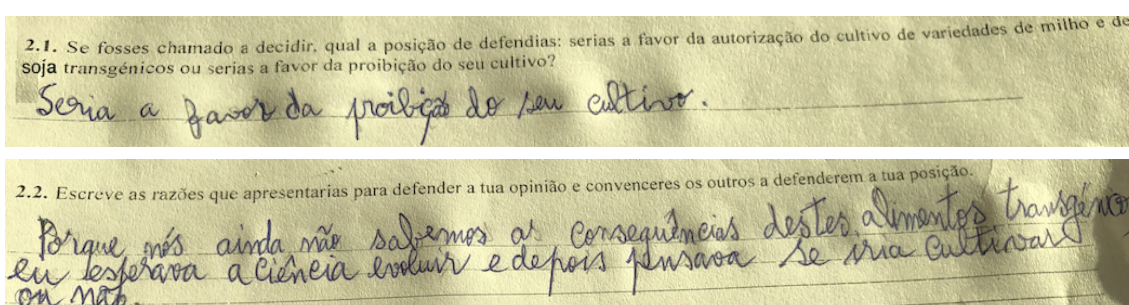 2.1. Se fosses chamado a decidir, qual a posição de defendias: serias a favor da autorização do cultivo de variedades de milho e de
soja transgénicos ou serias a favor da proibição do seu cultivo?
Seria a favor da proibição do seu cultivo.
2.2. Escreve as razões que apresentarias para defender a tua opinião e convenceres os outros a defenderem a tua posição.
Porque nós ainda não sabemos as consequências destes alimentos transgénico
eu esperava a ciência evoluir e depois pensava se iria cultivar
ou não.